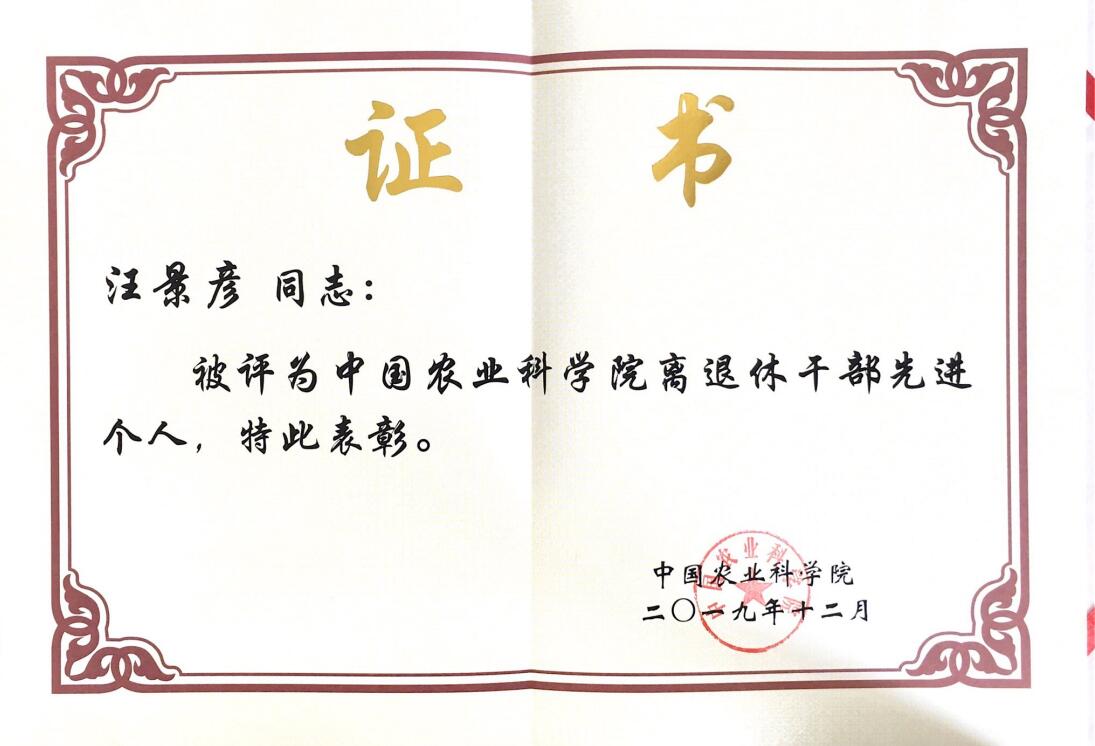 证书
汪景彦 同志：
被评为中国农业科学院离退休干部先进
个人，特此表彰。
中国农业科学院
二〇一九年十二月
中国农业科学院